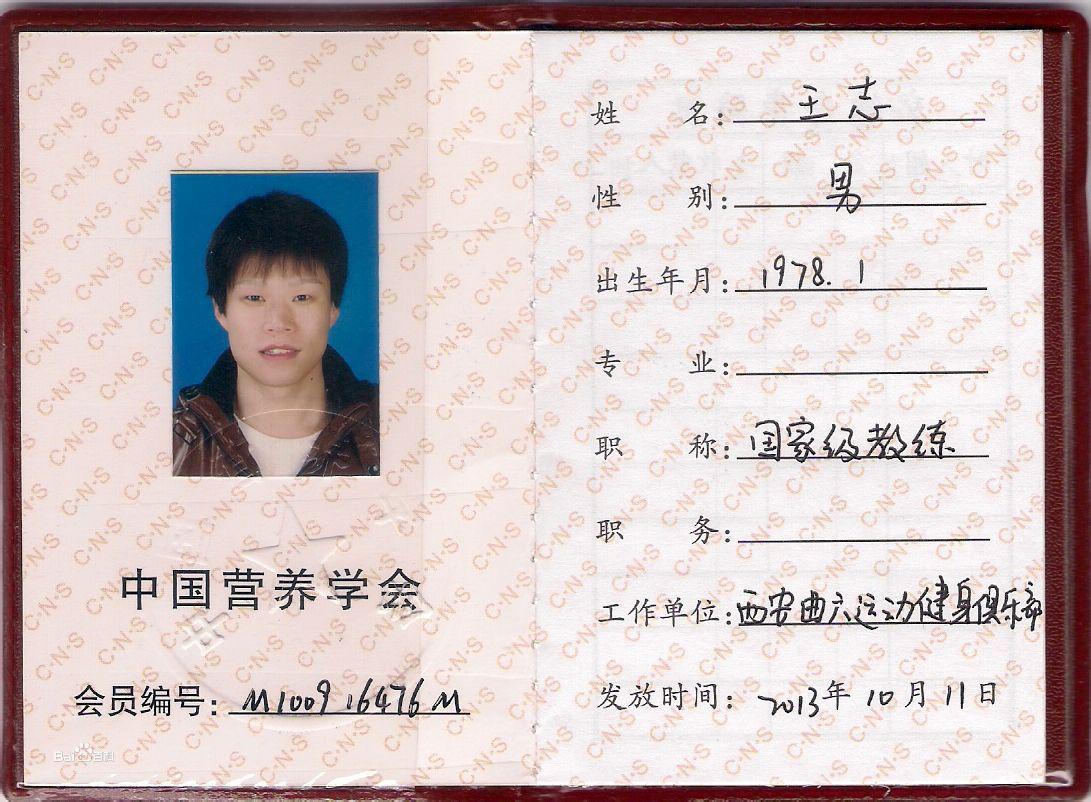 中国营养学会
会员编号：M100916476M
Bai百科
姓名：王志
性别：男
出生年月：1978.1
专业：
职称：国家级教练
职务：
工作单位：西安曲六运动健身俱乐部
发放时间：2013年10月11日